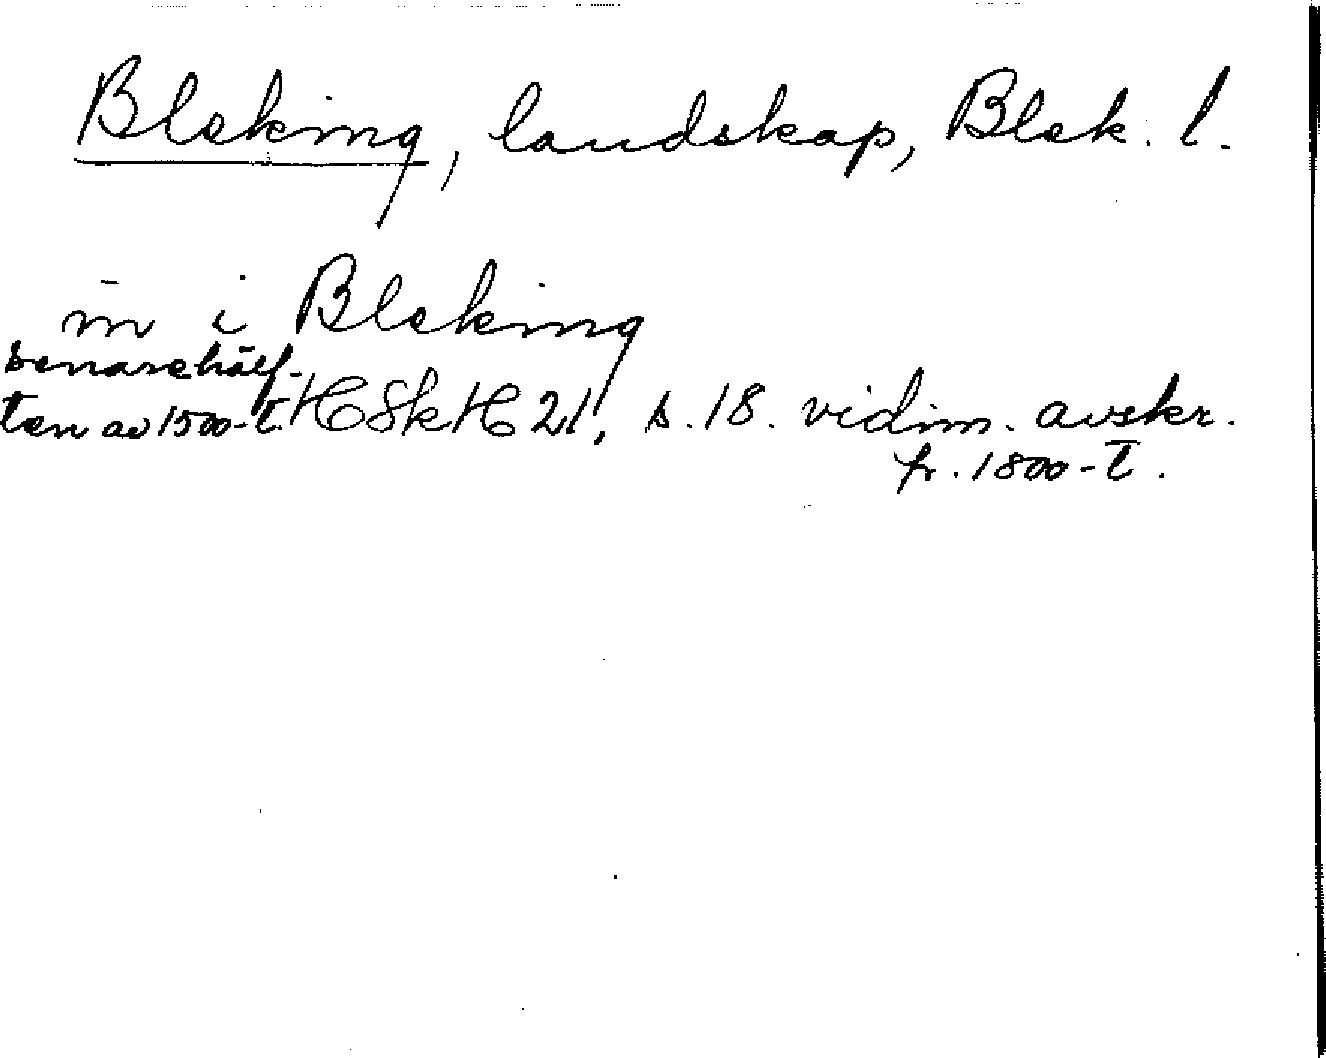 Bleking, landskap, Blek. l.
in i Bleking
senare hälf-
ten av 1500-t. HSkH 21, s. 18. vidim. avskr.
fr. 1800-t.